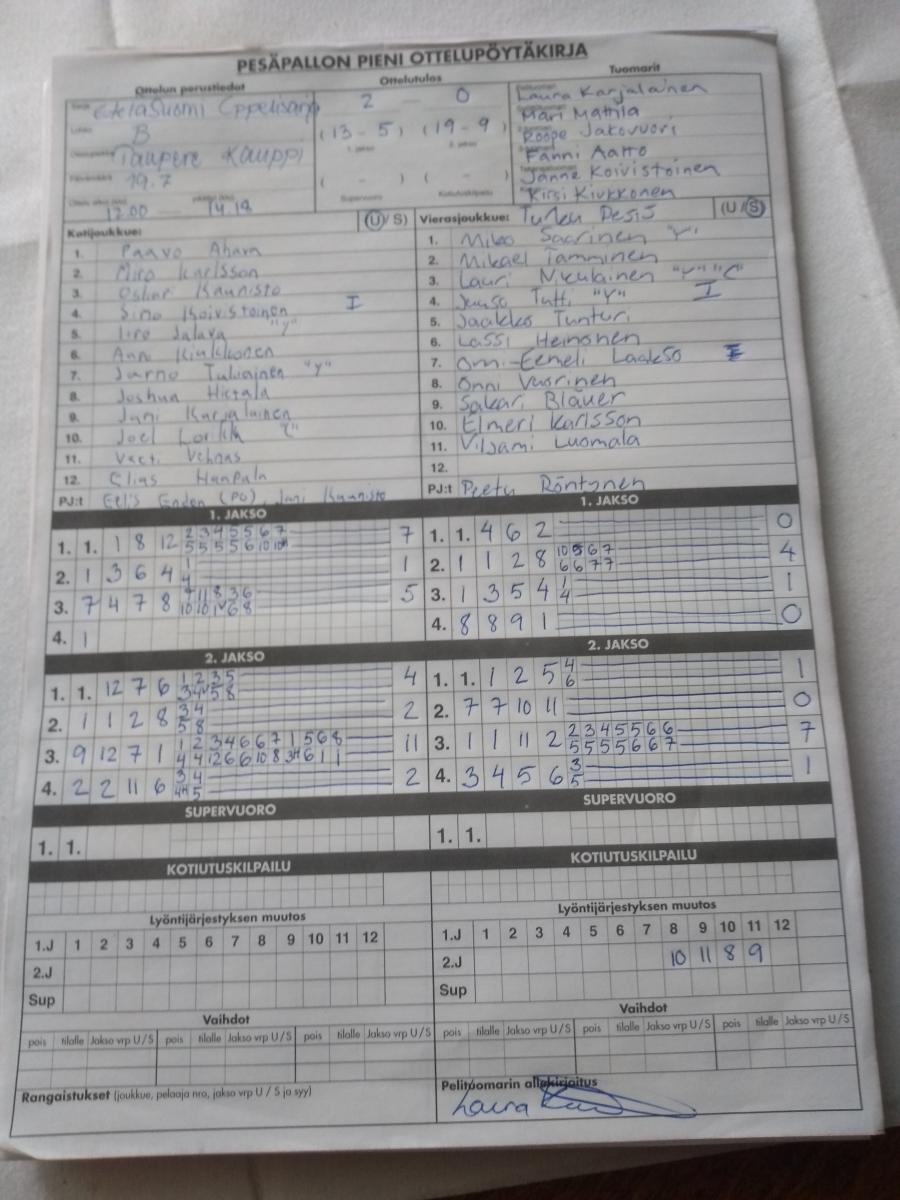 PESÄPALLON PIENI OTTELUPÖYTÄKIRJA
Ottelun perustiedot Ottelutulos Tuomarit
EteläSuomi 2 - 0 Laura Karjalainen
B (13 - 5) (19 - 9) Mari Mattila
1. jakso 2. jakso Roope Jakovuori
Kauppi Fanni Aalto
19.7 ( - ) ( - ) Janne Koivistoinen
12.00 14.18 Supervuoro Kotiutuskilpailu Kirsi Kivkkonen
Kotijoukkue: (U / S)
1. Paavo Ahava
2. Miro Karlsson
3. Oskar Kaunisto
4. Simo Koivistoinen I
5. Iiro Jalava "Y"
6. Anni
7. Jarno "Y"
8. Joshua Hietala
9. Jani Karjalainen
10. Joel
11. Veeti Vehnas
12. Elias Hanpala
PJ:t Eelis (PO), Jani Kaunisto
Vierasjoukkue: Turku Pesis (U / S)
1. Miko Saarinen "Y"
2. Mikael Tamminen
3. Lauri "Y" "C"
4. Juuso Tutti "Y" I
5. Jaakko Tunturi
6. Lassi Heinonen
7. Omi-Eemeli Laakso
8. Onni Vuorinen
9. Sakari Blåuer
10. Elmeri Karlsson
11. Viljami Luomala
12.
PJ:t Peetu Röntynen
1. JAKSO
1. 1. 1 8 12 2 3 4 5 5 6 7 7
5 5 5 5 6 10
2. 1 3 6 4 1 1
4
3. 7 4 7 8 11 8 3 6 5
10 10 6 8
4. 1
1. JAKSO
1. 1. 4 6 2 0
2. 1 1 2 8 10 5 6 7 4
6 6 7 7
3. 1 3 5 4 1 1
4
4. 8 8 9 1 0
2. JAKSO
1. 1. 12 7 6 1 2 3 5 4
3 4 5 8
2. 1 1 2 8 3 4 2
5 8
3. 9 12 7 1 1 2 3 4 6 6 7 1 5 6 8 11
4 4 12 6 6 10 8 6 1 1
4. 2 2 11 6 3 4 2
5
2. JAKSO
1. 1. 1 2 5 4 1
6
2. 7 7 10 11 0
3. 1 1 11 2 2 3 4 5 5 6 6 7
5 5 5 5 6 6 7
4. 3 4 5 6 3 1
5
SUPERVUORO
1. 1.
SUPERVUORO
1. 1.
KOTIUTUSKILPAILU
KOTIUTUSKILPAILU
Lyöntijärjestyksen muutos
1.J 1 2 3 4 5 6 7 8 9 10 11 12
2.J
Sup
Lyöntijärjestyksen muutos
1.J 1 2 3 4 5 6 7 8 9 10 11 12
2.J 10 11 8 9
Sup
Vaihdot
pois tilalle Jakso vrp U / S pois tilalle Jakso vrp U / S pois tilalle Jakso vrp U / S
Vaihdot
pois tilalle Jakso vrp U / S pois tilalle Jakso vrp U / S pois tilalle Jakso vrp U / S
Rangaistukset (joukkue, pelaaja nro, jakso vrp U / S ja syy)
Pelituomarin allekirjoitus
Laura